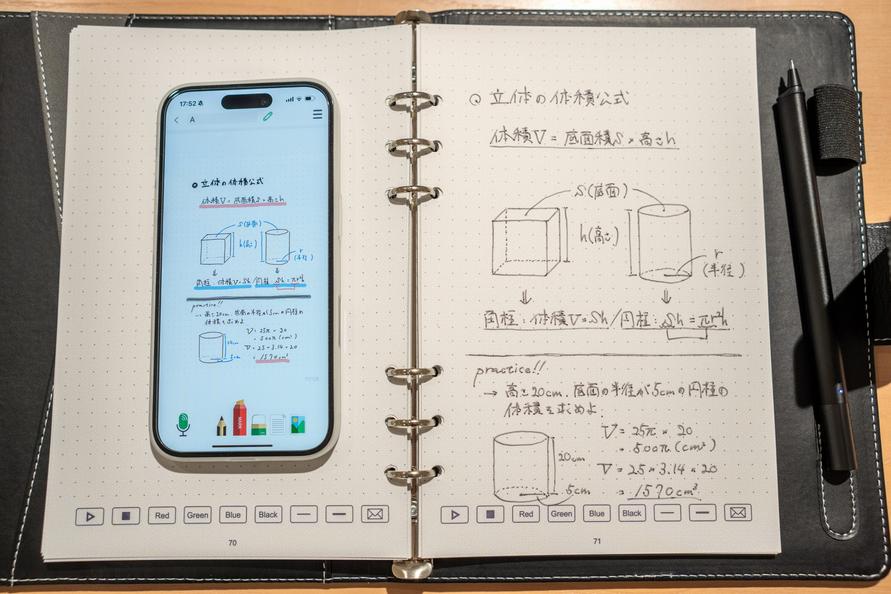 17:52
A
立体の体積公式
体積V=底面積S×高さh
S(底面)
h(高さ)
r
(半径)
角柱:体積V=Sh/円柱:Sh=πr²h
practice!!
→ 高さ20cm、底面の半径が5cmの円柱の
体積を求めよ
V=25π×20
=500π(cm³)
20cm
V=25×3.14×20
5cm
=1570cm³
Red Green Blue Black
70
立体の体積公式
体積V=底面積S×高さh
S(底面)
h(高さ)
r
(半径)
角柱:体積V=Sh/円柱:Sh=πr²h
practice!!
→ 高さ20cm、底面の半径が5cmの円柱の
体積を求めよ.
V=25π×20
=500π(cm³)
20cm
V=25×3.14×20
5cm
=1570cm³
Red Green Blue Black
71